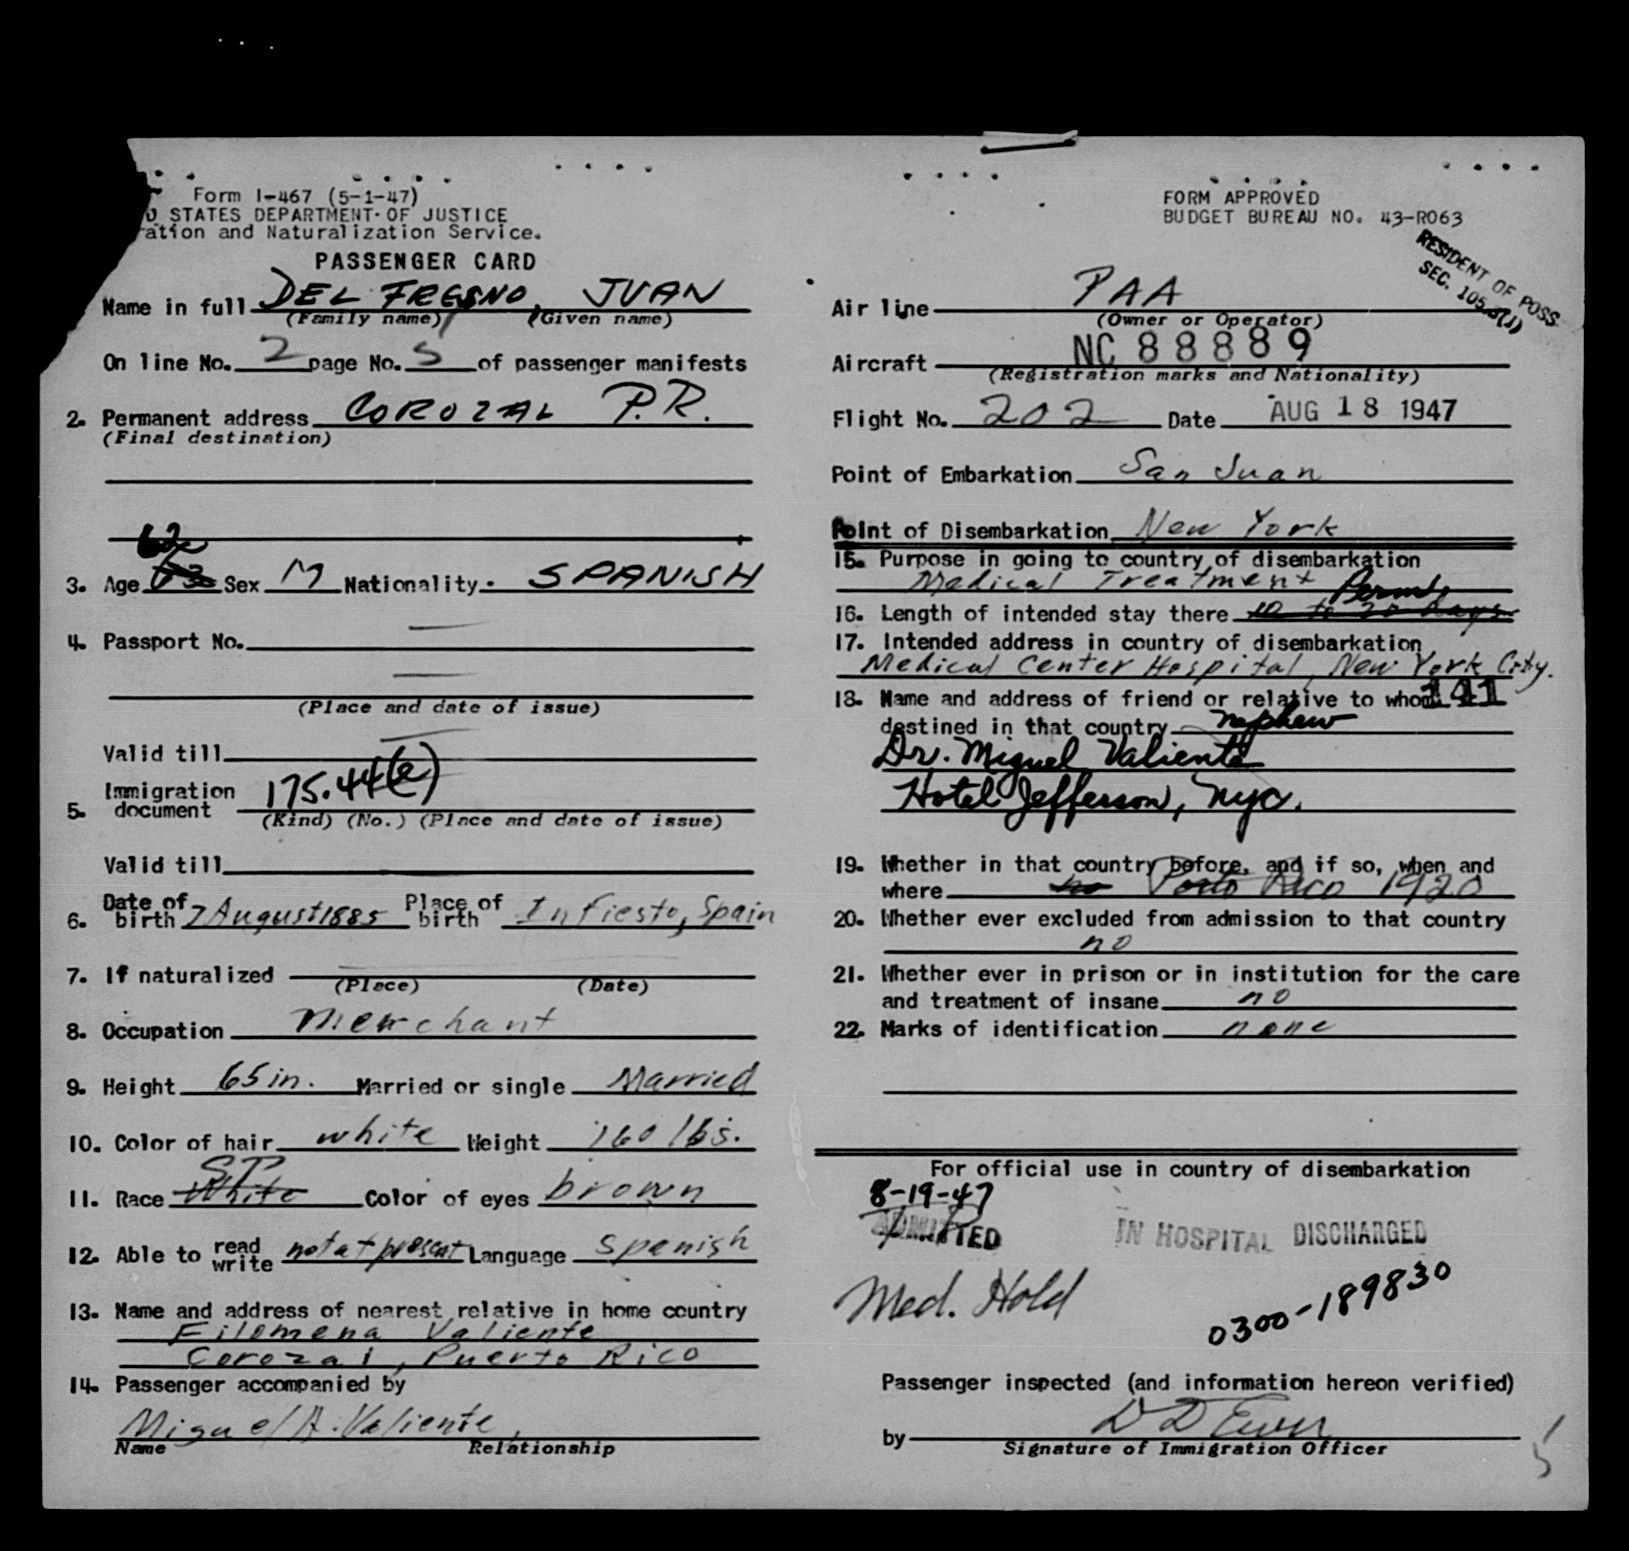 Form I-467 (5-1-47)
STATES DEPARTMENT OF JUSTICE
ation and Naturalization Service.
PASSENGER CARD
Name in full DEL FRESNO, JUAN
(Family name) (Given name)
On line No. 2 page No. 5 of passenger manifests
2. Permanent address COROZAL P.R.
(Final destination)
62
3. Age 63 Sex M Nationality. SPANISH
4. Passport No. —
—
(Place and date of issue)
Valid till —
5. Immigration document 175.44(e)
(Kind) (No.) (Place and date of issue)
Valid till
6. Date of birth 7 August 1885 Place of birth Infiesto, Spain
7. If naturalized
(Place) (Date)
8. Occupation Merchant
9. Height 65 in. Married or single Married
10. Color of hair white Weight 160 lbs.
SP
11. Race White Color of eyes brown
12. Able to read write not at present Language Spanish
13. Name and address of nearest relative in home country
Filomena Valiente
Corozal, Puerto Rico
14. Passenger accompanied by
Miguel A. Valiente,
Name Relationship
FORM APPROVED
BUDGET BUREAU NO. 43-R063
RESIDENT OF POSS
SEC. 105
Air line PAA
(Owner or Operator)
Aircraft NC 88889
(Registration marks and Nationality)
Flight No. 202 Date AUG 18 1947
Point of Embarkation San Juan
Point of Disembarkation New York
15. Purpose in going to country of disembarkation
Medical Treatment
Perm.
16. Length of intended stay there 10 to 20 days
17. Intended address in country of disembarkation
Medical Center Hospital, New York City.
18. Name and address of friend or relative to whom 141
destined in that country nephew
Dr. Miguel Valiente
Hotel Jefferson, nyc.
19. Whether in that country before, and if so, when and
where no Porto Rico 1920
20. Whether ever excluded from admission to that country
no
21. Whether ever in prison or in institution for the care
and treatment of insane no
22. Marks of identification none
For official use in country of disembarkation
8-19-47
ADMITTED IN HOSPITAL DISCHARGED
Med. Hold
0300-189830
Passenger inspected (and information hereon verified)
by
Signature of Immigration Officer
5